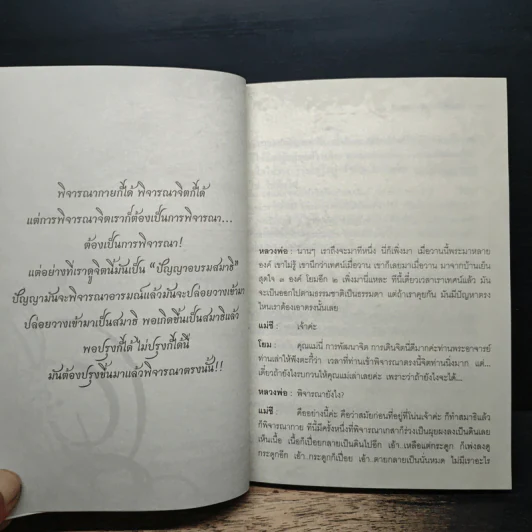 พิจารณากายก็ได้ พิจารณาจิตก็ได้
แต่การพิจารณาจิตเราก็ต้องเป็นการพิจารณา...
ต้องเป็นการพิจารณา!
แต่อย่างที่เราดูจิตนี้มันเป็น “ปัญญาอบรมสมาธิ”
ปัญญามันจะพิจารณาอารมณ์แล้วมันจะปล่อยวางเข้ามา
ปล่อยวางเข้ามาเป็นสมาธิ พอเกิดขึ้นเป็นสมาธิแล้ว
พอปรุงก็ได้ ไม่ปรุงก็ได้นี้
มันต้องปรุงขึ้นมาแล้วพิจารณาตรงนั้น!!
หลวงพ่อ : นานๆ เราถึงจะมาทีหนึ่ง นี่ก็เพิ่งมา เมื่อวานนี้พระมาหลาย
องค์ เขาไม่รู้ เขานึกว่าเทศน์เมื่อวาน เขาก็เลยมาเมื่อวาน มาจากบ้านเย้น
สุดใจ ๓ องค์ โยมอีก ๒ เพิ่งมานี่แหละ ทีนี้เดี๋ยวเวลาเราเทศน์แล้ว มัน
จะเป็นออกไปตามธรรมชาติเป็นธรรมดา แต่ถ้าเราคุยกัน มันมีปัญหาตรง
ไหนเราต้องเอาตรงนั้นเลย
แม่ชี : เจ้าค่ะ
โยม : คุณแม่นี่ การพัฒนาจิต การเดินจิตนี่ดีมากค่ะท่านพระอาจารย์
ท่านเล่าให้ฟังตะกี้ว่า เวลาที่ท่านเข้าพิจารณาตรงนี้จิตท่านนิ่งมาก แต่...
เดี๋ยวถ้ายังไงรบกวนให้คุณแม่เล่าเลยค่ะ เพราะว่าถ้ายังไงจะได้...
หลวงพ่อ : พิจารณายังไง?
แม่ชี : คืออย่างนี้ค่ะ คือว่าสมัยก่อนที่อยู่ที่โน่นเจ้าค่ะ ก็ทำสมาธิแล้ว
ก็พิจารณากาย ทีนี้มีครั้งหนึ่งที่พิจารณาเกสาก็ร่วงเป็นผุยผงลงเป็นดินเลย
เห็นเนื้อ เนื้อก็เปื่อยกลายเป็นดินไปอีก เอ้า..เหลือแต่กระดูก ก็เพ่งลงดู
กระดูกอีก เอ้า..กระดูกก็เปื่อย เอ้า..ตายกลายเป็นนั่นหมด ไม่มีเราอะไร